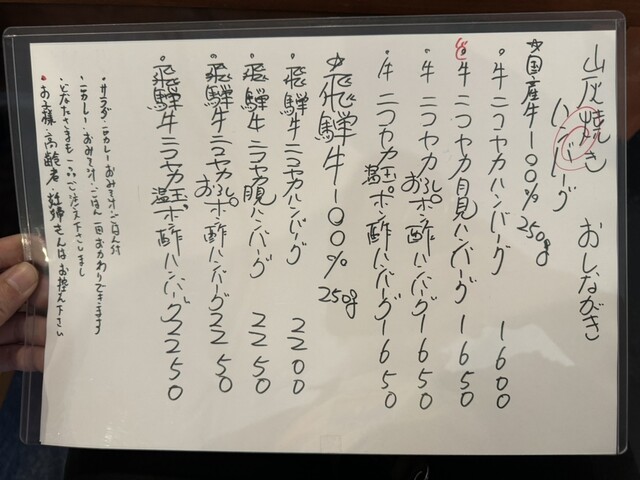 山灰焼き
ハンバーグ
おしながき
☆国産牛100% 250g
・牛ニコヤカハンバーグ 1600
・牛ニコヤカ月見ハンバーグ 1650
・牛ニコヤカおろしポン酢ハンバーグ 1650
・牛ニコヤカ温玉ポン酢ハンバーグ 1650
☆飛騨牛100% 250g
・飛騨牛ニコヤカハンバーグ 2200
・飛騨牛ニコヤカ月見ハンバーグ 2250
・飛騨牛ニコヤカおろしポン酢ハンバーグ 2250
・飛騨牛ニコヤカ温玉ポン酢ハンバーグ 2250
・サラダ・ミニカレー・おみそ汁・ごはん付
・ミニカレー・おみそ汁・ごはん一回おかわりできます
・どなたさまも一品ご注文下さいまし
・お子様・高齢者・妊婦さんはお控え下さい